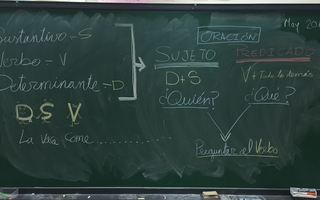 Sustantivo - S
Verbo - V
Determinante - D
D S V
La vaca come...............
ORACIÓN
SUJETO
D+S
¿Quién?
PREDICADO
V + Todo lo demás
¿Qué?
Preguntar al Verbo
May